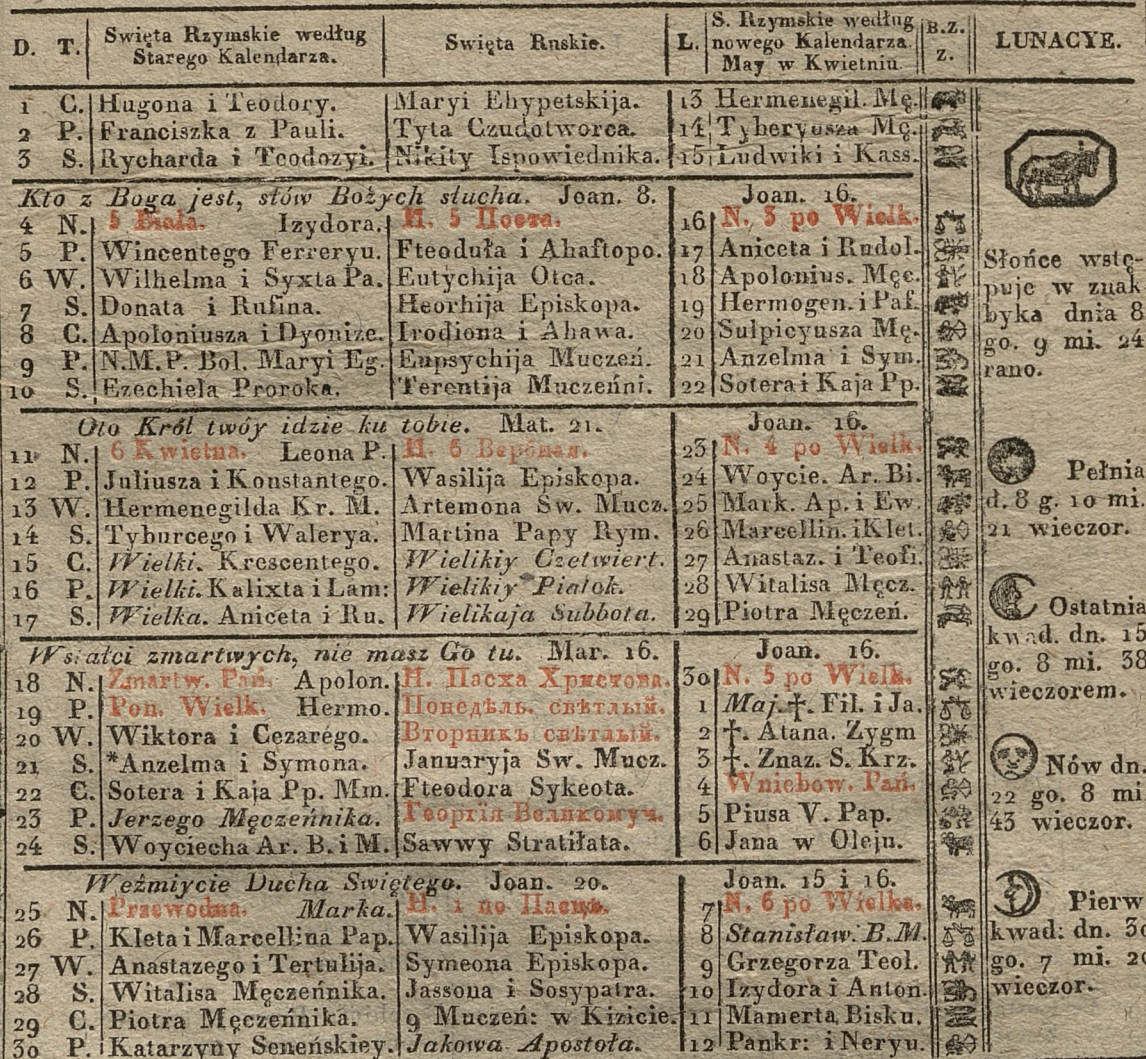 D. T. Swięta Rzymskie według Starego Kalendarza. Swięta Ruskie. L. S. Rzymskie według nowego Kalendarza. May w Kwietniu. B.Z. z. LUNACYE.
1 C. Hugona i Teodory. Maryi Ehypetskija. 13 Hermenegil. Mę.
2 P. Franciszka z Pauli. Tyta Czudotworca. 14 Tyberyusza Mę.
3 S. Rycharda i Teodozyi. Nikity Ispowiednika. 15 Ludwiki i Kass.
Kto z Boga jest, słów Bożych słucha. Joan. 8. Joan. 16.
4 N. 5 Biała. Izydora. Н. 5 Поста. 16 N. 3 po Wielk.
5 P. Wincentego Ferreryu. Fteoduła i Ahaftopo. 17 Aniceta i Rudol.
6 W. Wilhelma i Syxta Pa. Eutychija Otca. 18 Apolonius. Męc.
7 S. Donata i Rufina. Heorhija Episkopa. 19 Hermogen. i Paf.
8 C. Apoloniusza i Dyonize. Irodiona i Ahawa. 20 Sulpicyusza Mę.
9 P. N.M.P. Bol. Maryi Eg. Eupsychija Muczeń. 21 Anzelma i Sym.
10 S. Ezechiela Proroka. Terentija Muczeńni. 22 Sotera i Kaja Pp.
Oto Król twóy idzie ku tobie. Mat. 21. Joan. 16.
11 N. 6 Kwietna. Leona P. Н. 6 Вербная. 23 N. 4 po Wielk.
12 P. Juliusza i Konstantego. Wasilija Episkopa. 24 Woycie. Ar. Bi.
13 W. Hermenegilda Kr. M. Artemona Sw. Mucz. 25 Mark. Ap. i Ew.
14 S. Tyburcego i Walerya. Martina Papy Rym. 26 Marcellin. i Klet.
15 C. Wielki. Krescentego. Wielikiy Czetwiert. 27 Anastaz. i Teofi.
16 P. Wielki. Kalixta i Lam: Wielikiy Piatok. 28 Witalisa Męcz.
17 S. Wielka. Aniceta i Ru. Wielikaja Subbota. 29 Piotra Męczeń.
Wstałci zmartwych, nie masz Go tu. Mar. 16. Joan. 16.
18 N. Zmartw. Pań. Apolon. Н. Пасха Христова. 30 N. 5 po Wielk.
19 P. Pon. Wielk. Hermo. Понедѣль. свѣтлый. 1 Maj. †. Fil. i Ja.
20 W. Wiktora i Cezarégo. Вторникъ свѣтлый. 2 †. Atana. Zygm
21 S. *Anzelma i Symona. Januaryja Sw. Mucz. 3 †. Znaz. S. Krz.
22 C. Sotera i Kaja Pp. Mm. Fteodora Sykeota. 4 Wniebow. Pań.
23 P. Jerzego Męczeńnika. Георгія Великомуч. 5 Piusa V. Pap.
24 S. Woyciecha Ar. B. i M. Sawwy Stratiłata. 6 Jana w Oleju.
Weźmiycie Ducha Swiętego. Joan. 20. Joan. 15 i 16.
25 N. Przewodna. Marka. Н. 1 по Пасцѣ. 7 N. 6 po Wielka.
26 P. Kleta i Marcellina Pap. Wasilija Episkopa. 8 Stanisław. B.M.
27 W. Anastazego i Tertulija. Symeona Episkopa. 9 Grzegorza Teol.
28 S. Witalisa Męczeńnika. Jassona i Sosypatra. 10 Izydora i Anton.
29 C. Piotra Męczeńnika. 9 Muczeń: w Kizicie. 11 Mamerta Bisku.
30 P. Katarzyny Seneńskiey. Jakowa Apostoła. 12 Pankr: i Neryu.
Słońce wstę-
puje w znak
byka dnia 8
go. 9 mi. 24
rano.
Pełnia
d. 8 g. 10 mi
21 wieczor.
Ostatnia
kwad. dn. 15
go. 8 mi. 38
wieczorem.
Nów dn.
22 go. 8 mi
43 wieczor.
Pierw
kwad: dn. 30
go. 7 mi. 20
wieczor.